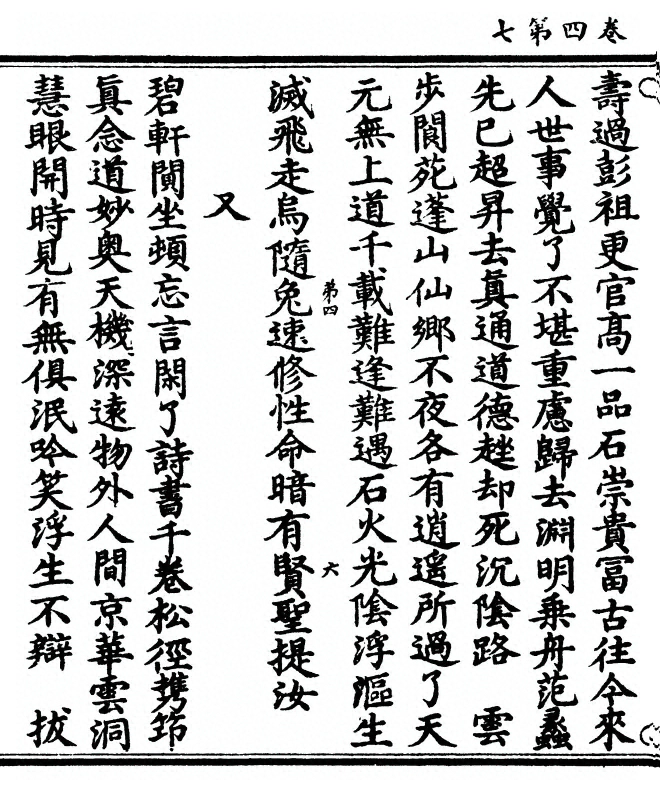 卷四第七
壽過彭祖更官髙一品石崇貴冨古往今來
人世事覺了不堪重慮歸去淵明乗舟范蠡
先已超昇去真通道德趓却死沉隂路 雲
步閬苑蓬山仙鄉不夜各有逍遥所過了天
元無上道千載難逢難遇石火光隂浮漚生
第四
六
滅飛走烏隨兔速修性命暗有賢聖提汝
又
碧軒閴坐頓忘言閑了詩書千卷松徑携筇
真念道妙奥天機深逺物外人間京華雲洞
慧眼開時見有無俱泯吟笑浮生不辯 拔